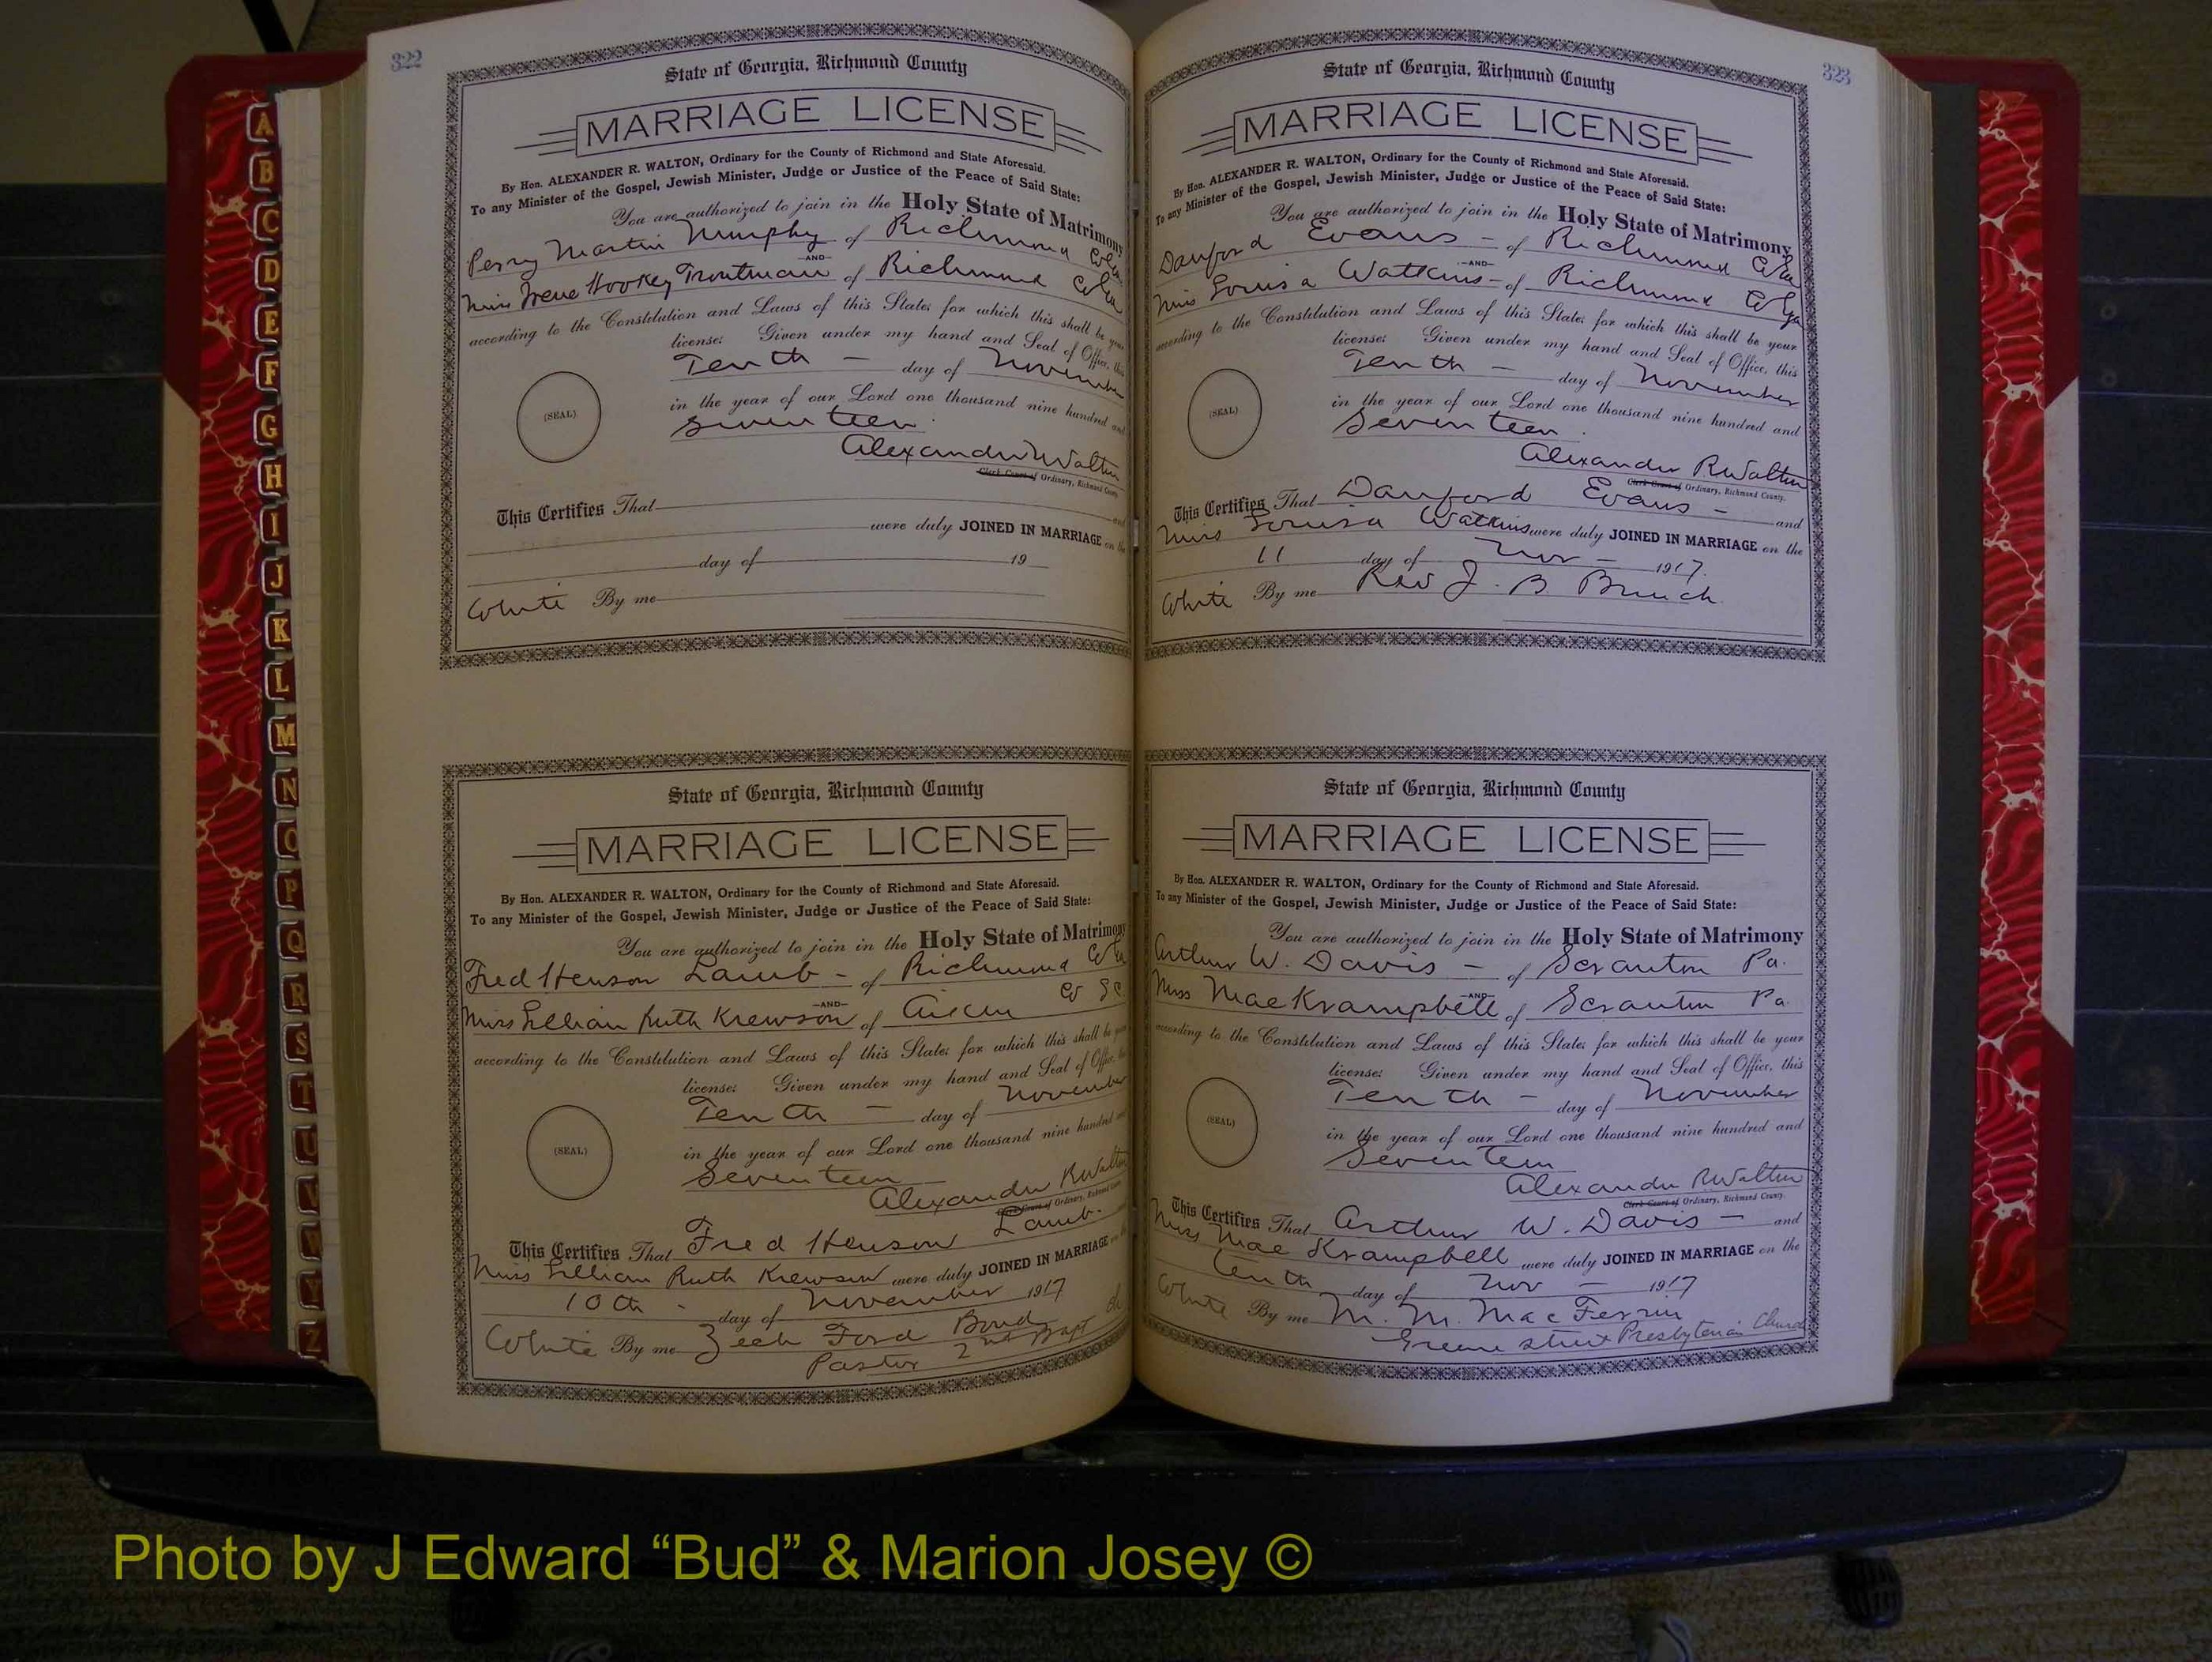 322
State of Georgia, Richmond County
MARRIAGE LICENSE
By Hon. ALEXANDER R. WALTON, Ordinary for the County of Richmond and State Aforesaid.
To any Minister of the Gospel, Jewish Minister, Judge or Justice of the Peace of Said State:
You are authorized to join in the Holy State of Matrimony
Perry Martin Murphy of Richmond Co Ga
AND
Miss Irene Hookey Troutman of Richmond Co Ga
according to the Constitution and Laws of this State; for which this shall be your
license: Given under my hand and Seal of Office, this
Tenth – day of November
in the year of our Lord one thousand nine hundred and
Seventeen
Alexander R Walton
Clerk Court of Ordinary, Richmond County
(SEAL)
This Certifies That and
were duly JOINED IN MARRIAGE on the
day of 19
White By me
State of Georgia, Richmond County
MARRIAGE LICENSE
By Hon. ALEXANDER R. WALTON, Ordinary for the County of Richmond and State Aforesaid.
To any Minister of the Gospel, Jewish Minister, Judge or Justice of the Peace of Said State:
You are authorized to join in the Holy State of Matrimony
Fred Henson Lamb – of Richmond Co Ga
AND
Miss Lillian Ruth Krewson of Aiken Co SC
according to the Constitution and Laws of this State; for which this shall be your
license: Given under my hand and Seal of Office, this
Tenth – day of November
in the year of our Lord one thousand nine hundred and
Seventeen
Alexander R Walton
Clerk Court of Ordinary, Richmond County
(SEAL)
This Certifies That Fred Henson Lamb.
Miss Lillian Ruth Krewson were duly JOINED IN MARRIAGE on the
10th - day of November 1917
White By me Zech Ford Bond
Pastor 2nd Bapt Ch
323
State of Georgia, Richmond County
MARRIAGE LICENSE
By Hon. ALEXANDER R. WALTON, Ordinary for the County of Richmond and State Aforesaid.
To any Minister of the Gospel, Jewish Minister, Judge or Justice of the Peace of Said State:
You are authorized to join in the Holy State of Matrimony
Danford Evans – of Richmond Co Ga
AND
Miss Louisa Watkins – of Richmond Co Ga
according to the Constitution and Laws of this State; for which this shall be your
license: Given under my hand and Seal of Office, this
Tenth – day of November
in the year of our Lord one thousand nine hundred and
Seventeen
Alexander R Walton
Clerk Court of Ordinary, Richmond County.
(SEAL)
This Certifies That Danford Evans – and
Miss Louisa Watkins were duly JOINED IN MARRIAGE on the
11 day of Nov – 1917.
White By me Rev J. B
State of Georgia, Richmond County
MARRIAGE LICENSE
By Hon. ALEXANDER R. WALTON, Ordinary for the County of Richmond and State Aforesaid.
To any Minister of the Gospel, Jewish Minister, Judge or Justice of the Peace of Said State:
You are authorized to join in the Holy State of Matrimony
Arthur W. Davis – of Scranton Pa.
AND
Miss Mae Krampbell of Scranton Pa.
according to the Constitution and Laws of this State; for which this shall be your
license: Given under my hand and Seal of Office, this
Tenth – day of November
in the year of our Lord one thousand nine hundred and
Seventeen
Alexander R Walton
Clerk Court of Ordinary, Richmond County.
(SEAL)
This Certifies That Arthur W. Davis – and
Miss Mae Krampbell were duly JOINED IN MARRIAGE on the
tenth day of Nov – 1917
White By me M. M. MacFerrin
Greene street Presbyterian Church
A
B
C
D
E
F
G
H
I
J
K
L
M
N
O
P
Q
R
S
T
U
V
W
Y
Z
Photo by J Edward “Bud” & Marion Josey ©